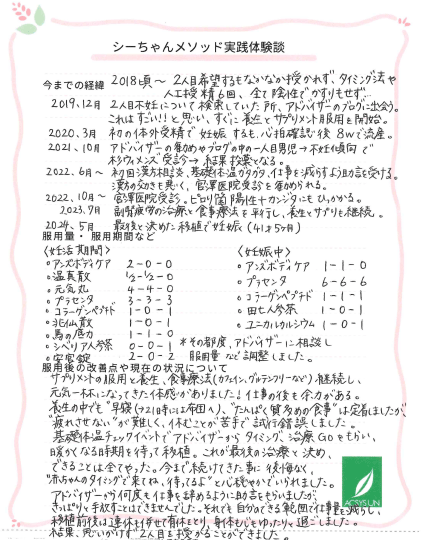 シーちゃんメソッド実践体験談
今までの経緯 2018頃～ 2人目希望するもなかなか授かれず、タイミング法や
人工授精6回、全て陰性でかすりもせず…
2019.12月 2人目不妊について検索していた所、アドバイザーのブログに出会う。
これはすごい!!と思い、すぐに養生とサプリメント服用を開始。
2020.3月 初の体外受精で妊娠するも、心拍確認後8wで流産。
2021.10月 アドバイザーの勧めやブログの中の一人目男児→不妊傾向で
杉ウィメンズ受診→結果投薬となる。
2022.6月～ 初回漢方相談、基礎体温ガタガタ、仕事を減らすよう助言を受ける。
漢方の効きも悪く、宮澤医院受診を勧められる。
2022.10月～ 宮澤医院受診。ピロリ菌陽性+カンジダにもひっかかる。
2023.7月 副腎疲労の治療と食事療法を平行し、養生とサプリも継続。
2024.5月 最後と決めた移植で妊娠(41才5ヶ月)
服用量・服用期間など
〈妊活期間〉
○アンズボディケア 2-0-0
○温真散 ½-½-0
○元気丸 4-4-0
○プラセンタ 3-3-3
○コラーゲンペプチド 1-0-1
○兆仙散 1-0-1
○馬の底力 1-1-0
○シベリア人参茶 0-0-1
○安宮錠 2-0-2
〈妊娠中〉
○アンズボディケア 1-1-0
○プラセンタ 6-6-6
○コラーゲンペプチド 1-1-1
○田七人参茶 1-0-1
○ユニカルカルシウム 1-0-1
*その都度、アドバイザーに相談し
服用量など調整しました。
服用後の改善点や現在の状況について
サプリメントの服用と養生、食事療法(カフェイン、グルテンフリーなど)継続し、
元気一杯になってきた体感がありました!仕事の後も余力がある。
養生の中でも“早寝(→21時には布団へ)、“たんぱく質多めの食事”は定着しましたが、
“疲れさせない”が難しく、休むことが苦手で試行錯誤しました。
基礎体温チェックイベントでアドバイザーからタイミング、治療GOをもらい、
暖かくなる時期を待って移植。これが最後の治療と決め、
できることは全てやった。今まで続けてきた事に後悔なく、
“赤ちゃんのタイミングで来てね、待ってるよ”と心穏やかでいられました。
アドバイザーから何度も仕事を辞めるように助言をもらいましたが、
きっぱりと手放すことはできませんでした。それでも自分のできる範囲で仕事量を減らし、
移植前後は連休も併せて有休をとり、身体も心もゆったりと過ごしました。
結果、思いがけず2人目を授かることができました。
ACSYSUN